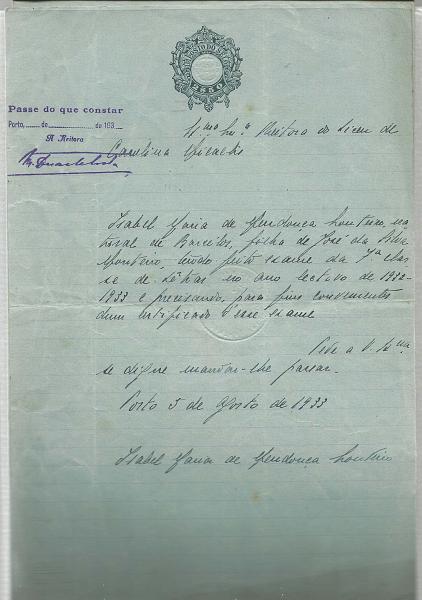 Passe do que constar
Porto, de de 193
A Reitora
Ex.ma Sr.a Reitora do Liceu de
Carolina Michaëlis
Isabel Maria de Mendonça Monteiro, na-
tural de Barcelos, filha de José da Silva
Monteiro, tendo feito exame da 7.a clas-
se de Letras no ano lectivo de 1932-
1933 e precisando, para fins convenientes
dum certificado dêsse exame
Pede a V. Ex.ma
se digne mandar-lhe passar.
Porto 5 de Agosto de 1933
Isabel Maria de Mendonça Monteiro